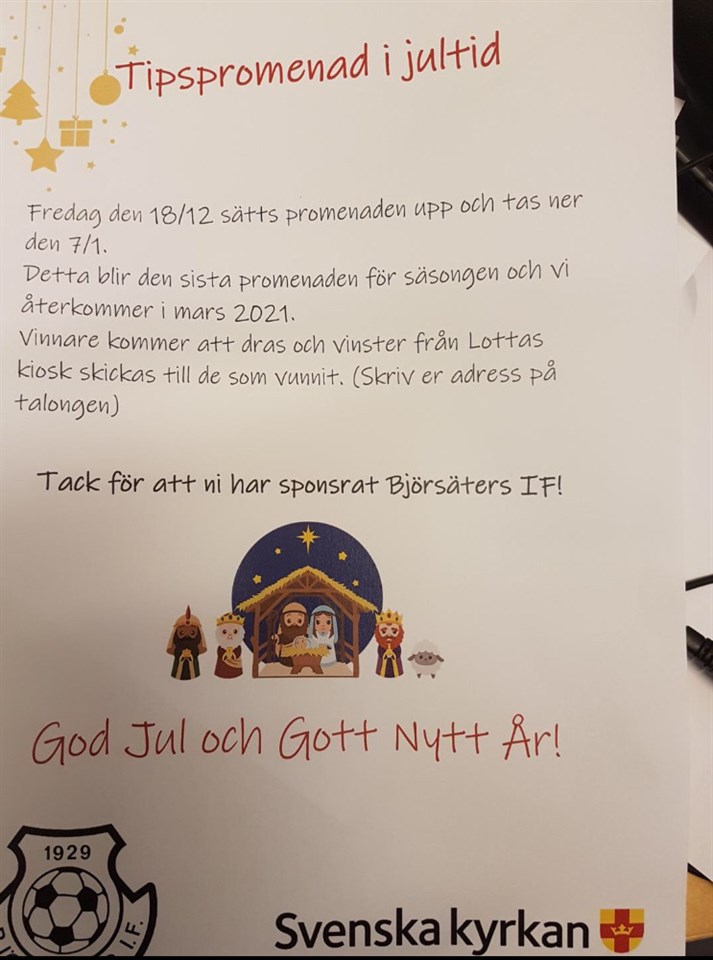 Tipspromenad i jultid
Fredag den 18/12 sätts promenaden upp och tas ner
den 7/1.
Detta blir den sista promenaden för säsongen och vi
återkommer i mars 2021.
Vinnare kommer att dras och vinster från Lottas
kiosk skickas till de som vunnit. (Skriv er adress på
talongen)
Tack för att ni har sponsrat Björsäters IF!
God Jul och Gott Nytt År!
1929
I.F.
Svenska kyrkan